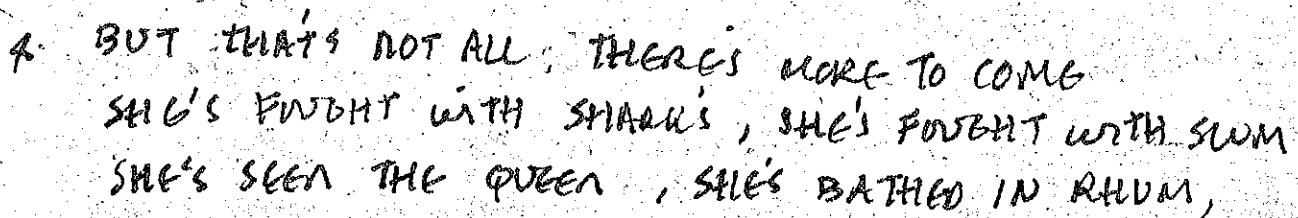 4. BUT THAT'S NOT ALL, THERE'S MORE TO COME
SHE'S FOUGHT WITH SHARKS, SHE'S FOUGHT WITH SCUM
SHE'S SEEN THE QUEEN, SHE'S BATHED IN RHUM,